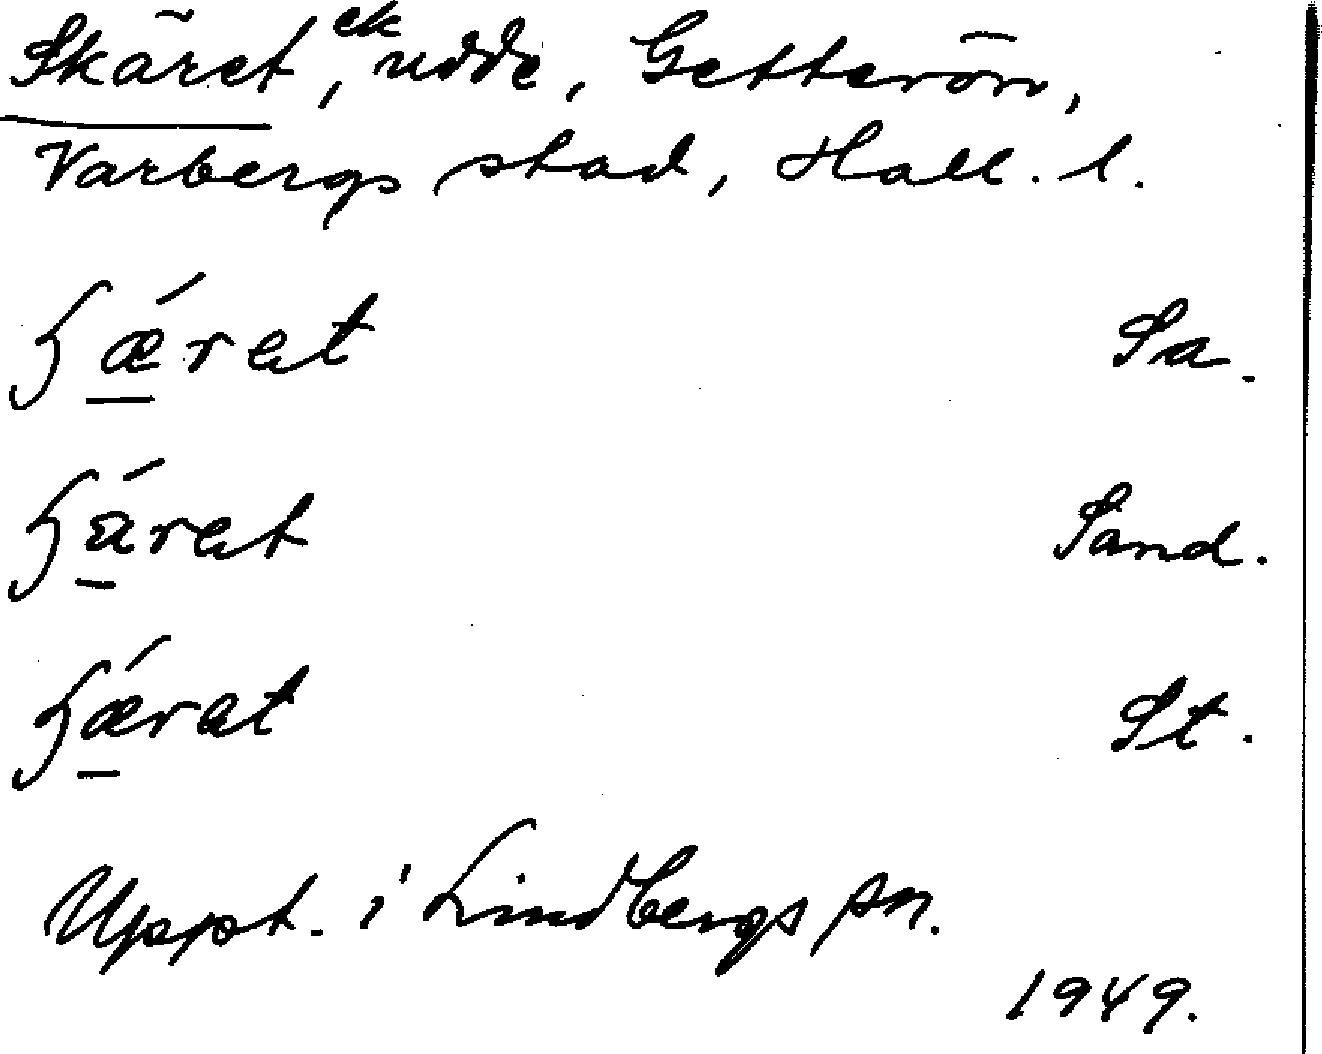 Skäret, ek udde, Getterön,
Varbergs stad, Hall. l.
ʃǽrat Sa.
ʃárat Sand.
ʃǽrat St.
Uppt. i Lindbergs sn.
1949.